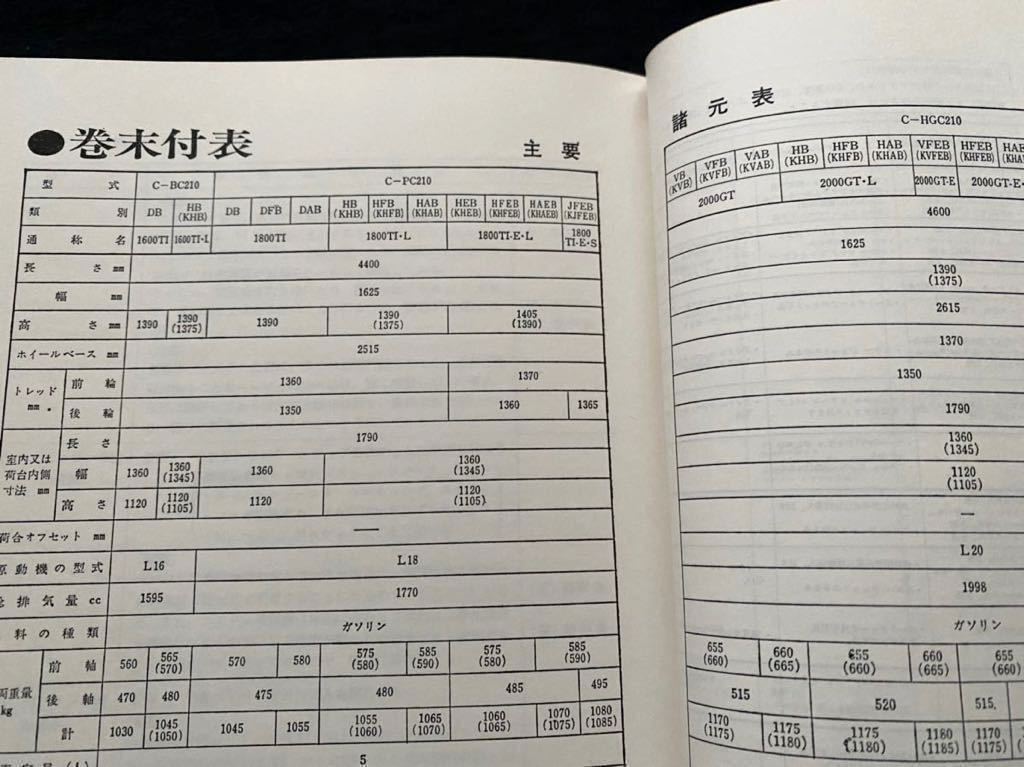 ●巻末付表
主要
型式 C-BC210 C-PC210
類別 DB HB (KHB) DB DFB DAB HB (KHB) HFB (KHFB) HAB (KHAB) HEB (KHEB) HFEB (KHFEB) HAEB (KHAEB) JFEB (KJFEB)
通称名 1600TI 1600TI・L 1800TI 1800TI・L 1800TI-E・L 1800 TI-E・S
長さmm 4400
幅mm 1625
高さmm 1390 1390 (1375) 1390 1390 (1375) 1405 (1390)
ホイールベースmm 2515
トレッドmm 前輪 1360 1370
後輪 1350 1360 1365
室内又は荷台内側寸法mm 長さ 1790
幅 1360 1360 (1345) 1360 1360 (1345)
高さ 1120 1120 (1105) 1120 1120 (1105)
荷台オフセットmm —
原動機の型式 L16 L18
排気量cc 1595 1770
料の種類 ガソリン
両重量kg 前軸 560 565 (570) 570 580 575 (580) 585 (590) 575 (580) 585 (590)
後軸 470 480 475 480 485 495
計 1030 1045 (1050) 1045 1055 1055 (1060) 1065 (1070) 1060 (1065) 1070 (1075) 1080 (1085)
5
諸元表
C-HGC210
VB (KVB) VFB (KVFB) VAB (KVAB) HB (KHB) HFB (KHFB) HAB (KHAB) VFEB (KVFEB) HFEB (KHFEB) HAE (KHA
2000GT 2000GT・L 2000GT-E 2000GT-E・
4600
1625
1390 (1375)
2615
1370
1350
1790
1360 (1345)
1120 (1105)
—
L20
1998
ガソリン
655 (660) 660 (665) 655 (660) 660 (665) 655 (660)
515 520 515
1170 (1175) 1175 (1180) 1175 (1180) 1180 (1185) 1170 (1175) 11